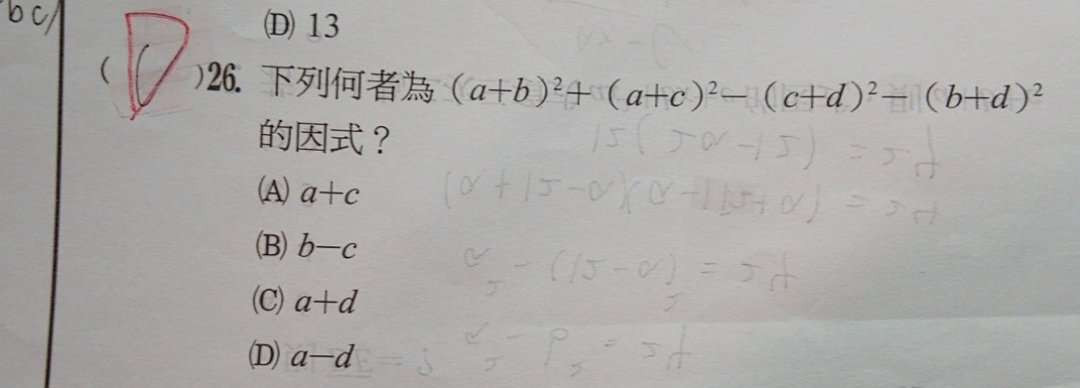 bc/
(D) 13
( D )26. 下列何者為 (a+b)²+ (a+c)²− (c+d)²− (b+d)²
的因式？
(A) a+c
(B) b−c
(C) a+d
(D) a−d